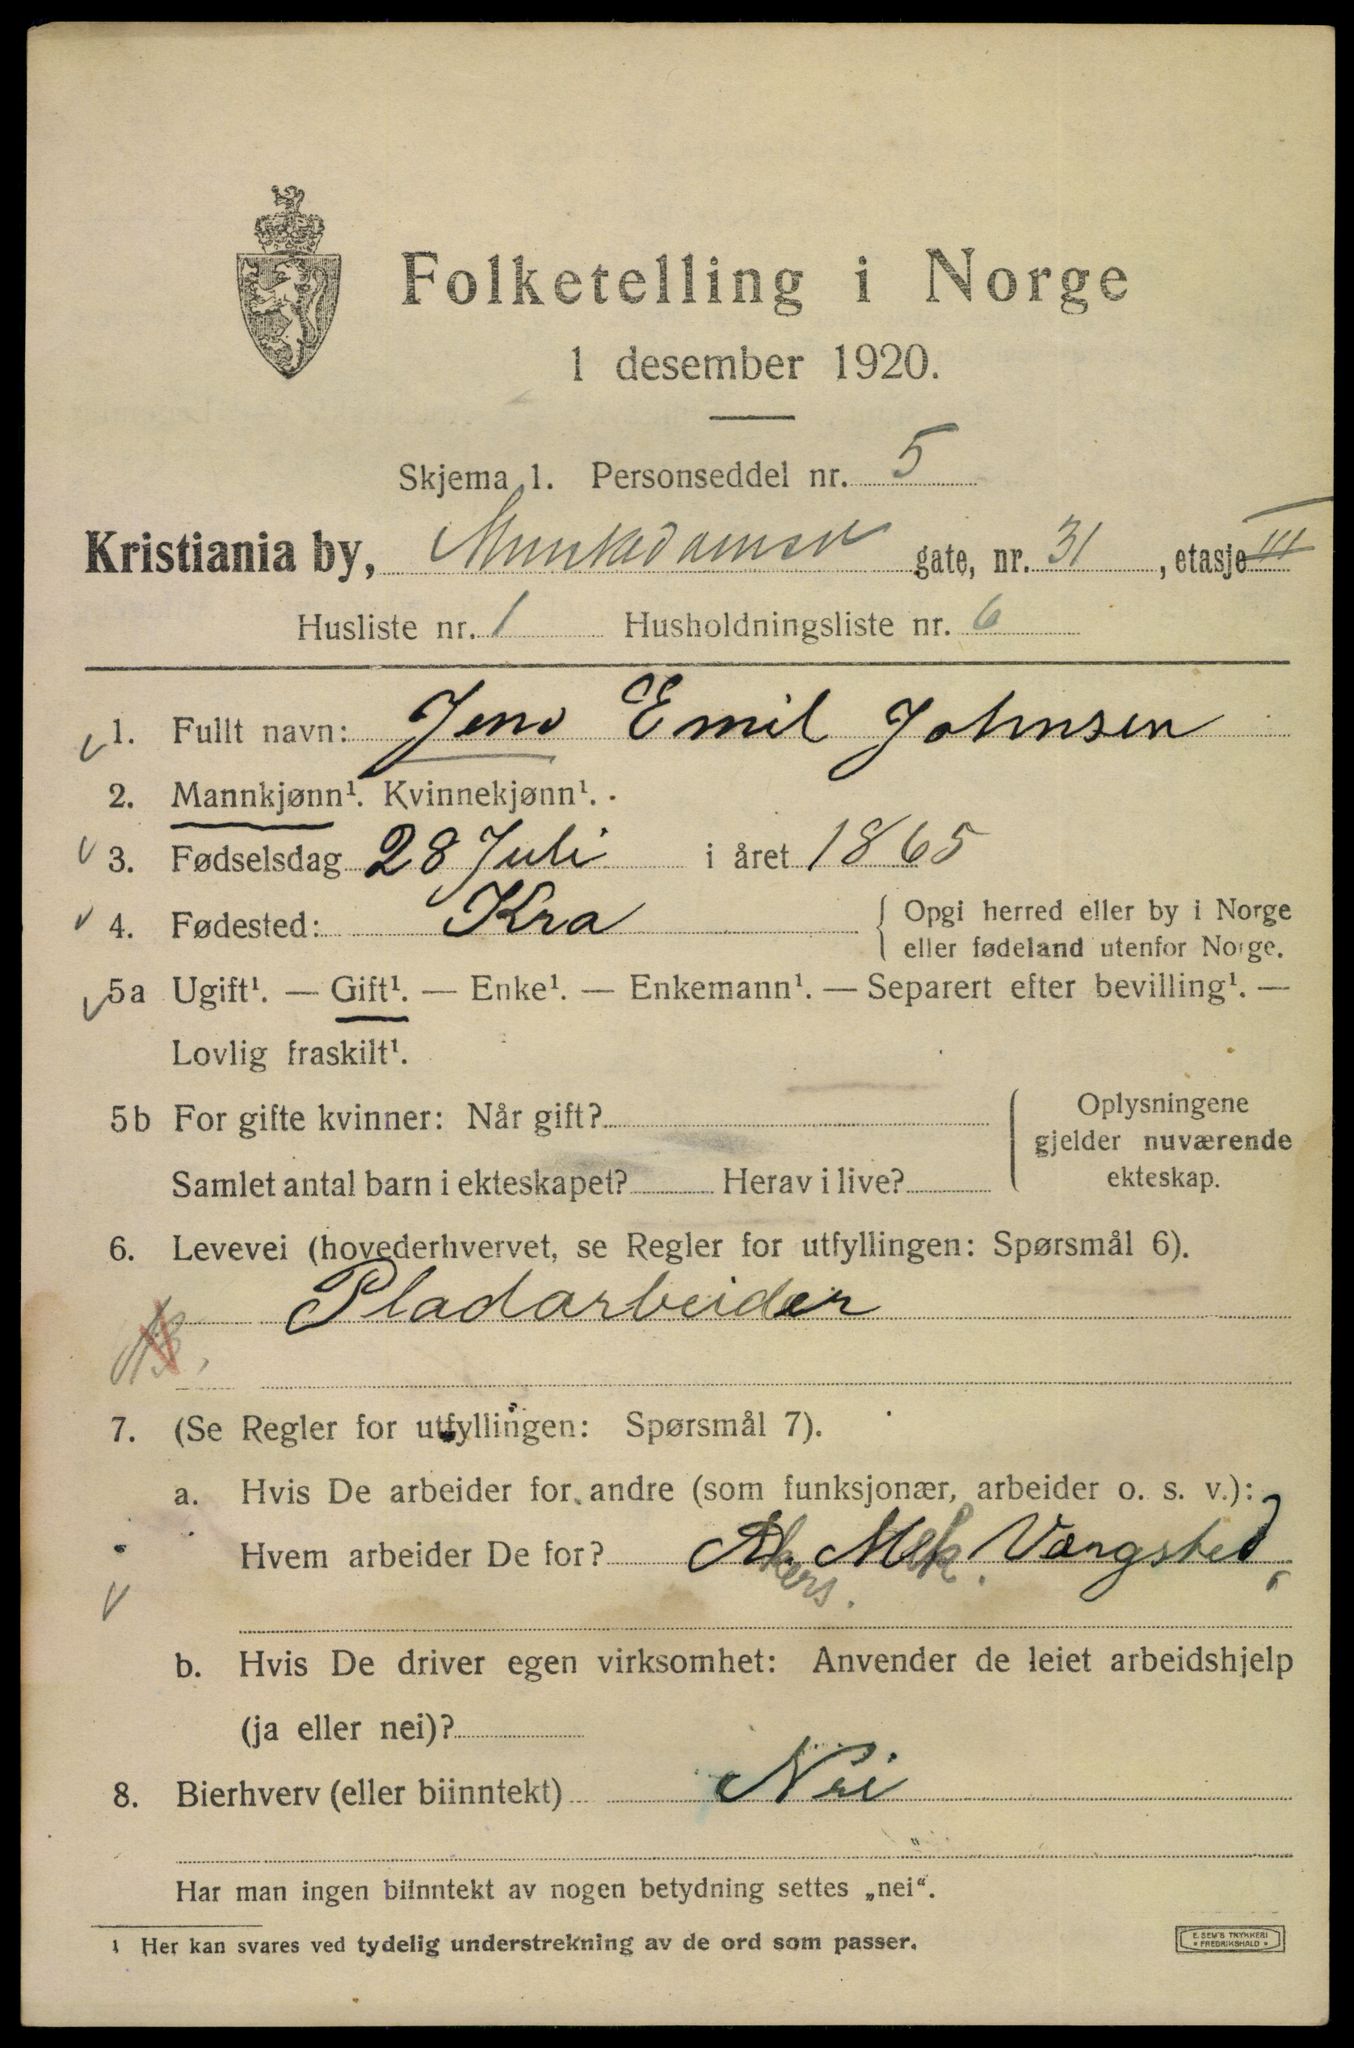 Folketelling i Norge
1 desember 1920.
Skjema 1. Personseddel nr. 5
Kristiania by, Munkedamsv gate, nr. 31, etasje III
Husliste nr. 1 Husholdningsliste nr. 6
1. Fullt navn: Jens Emil Johnsen
2. Mannkjønn¹. Kvinnekjønn¹.
3. Fødselsdag 28 Juli i året 1865
4. Fødested: Kra { Opgi herred eller by i Norge
eller fødeland utenfor Norge.
5a Ugift¹. — Gift¹. — Enke¹. — Enkemann¹. — Separert efter bevilling¹. —
Lovlig fraskilt¹.
5b For gifte kvinner: Når gift?
Samlet antal barn i ekteskapet? Herav i live?
Oplysningene
gjelder nuværende
ekteskap.
6. Levevei (hovederhvervet, se Regler for utfyllingen: Spørsmål 6).
Pladarbeider
7. (Se Regler for utfyllingen: Spørsmål 7).
a. Hvis De arbeider for andre (som funksjonær, arbeider o. s. v.):
Hvem arbeider De for? Akers. Mek. Værgsted,
b. Hvis De driver egen virksomhet: Anvender de leiet arbeidshjelp
(ja eller nei)?
8. Bierhverv (eller biinntekt) Nei
"
Har man ingen biinntekt av nogen betydning settes „nei“.
¹ Her kan svares ved tydelig understrekning av de ord som passer.
E. SEM'S TRYKKERI
• FREDRIKSHALD •